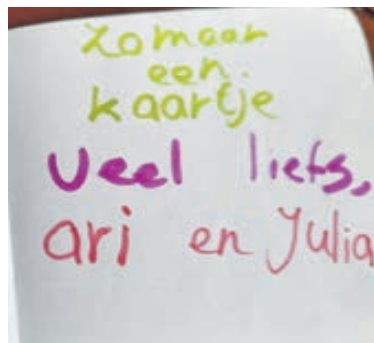 Zomaar
een
kaartje
Veel liefs,
ari en Julia